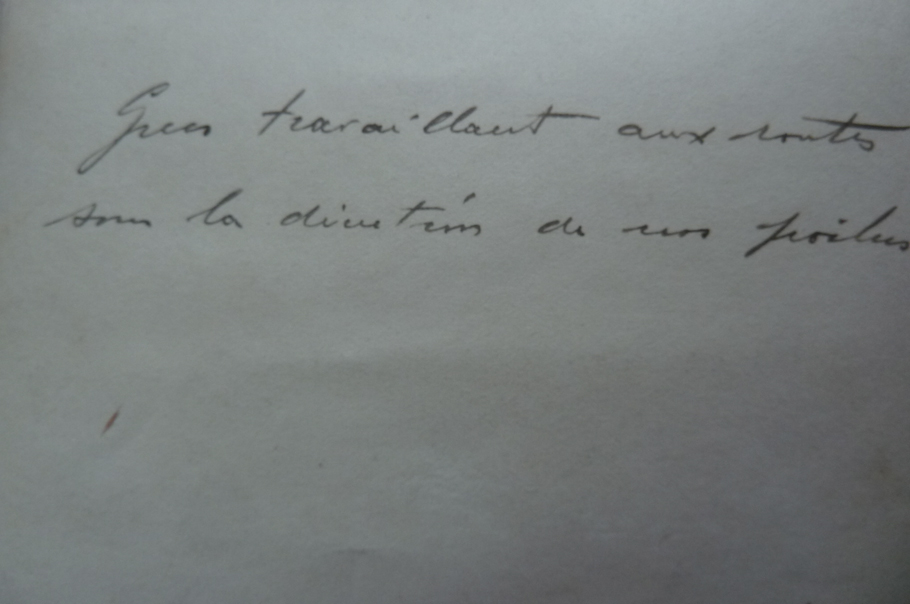 Grecs travaillant aux routes
sous la direction de nos poilus